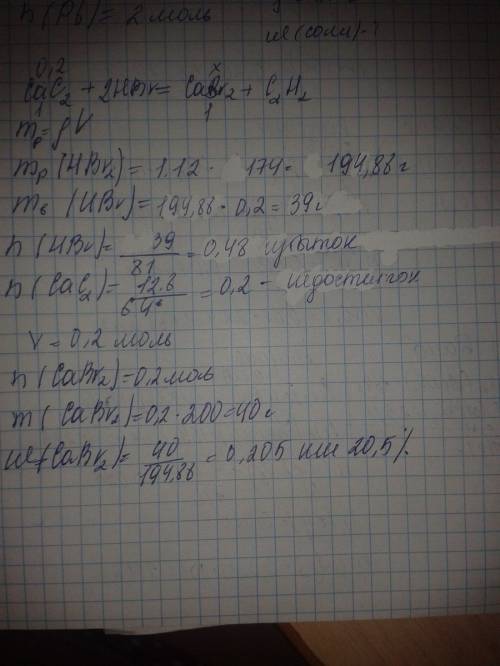 n(Pb)= 2 моль
w(соли)-?
0,2 x
CaC2 + 2HBr = CaBr2 + C2H2
1 1
mр=ρV
mр(HBr2)= 1.12 · 174= 194,88г
mв (HBr)=194,88·0,2=39г
n(HBr)= 39/81 = 0,48 избыток
n(CaC2)= 12.8/64 = 0,2 - недостаток
V = 0,2 моль
n(CaBr2)=0,2 моль
m(CaBr2)=0,2·200=40г
w(CaBr2)= 40/194,88 = 0,205 или 20,5%